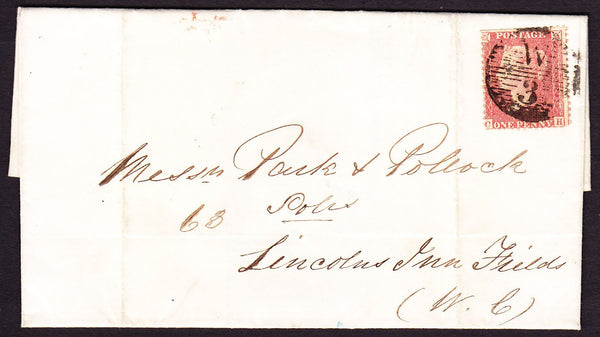 POSTAGE
W
3
G H
ONE PENNY
Messrs Park & Pollock
63 Solrs
Lincolns Inn Fields
(W. C)